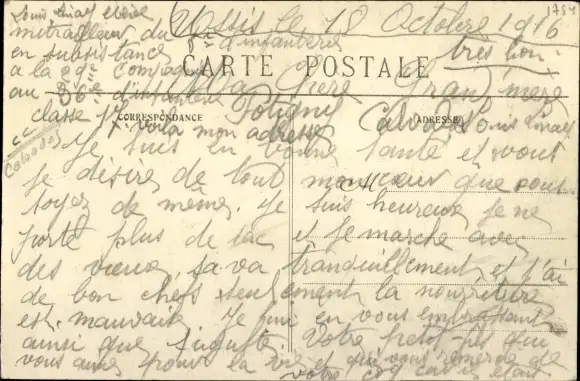 Ussis le 18 Octobre 1916
1754
très bon
Louis Linael élève
mitrailleur du 8e d'infanterie
en subsistance
a la 29me Compagnie
au 36e d'infanterie
classe 17
voila mon adresse
CARTE POSTALE
Ma Chere Grand mère
CORRESPONDANCE
ADRESSE
Potigny Calvados
Louis Linael
Calvados
Je suis en bonne santé et vous
je désire de tout mon cœur que vous
soyez de même. Je suis heureux je ne
porte plus de sac et je marche avec
des vieux, sa va tranquillement et j'ai
de bon chefs seulement la nourriture
est mauvaise. Je fini en vous embrassant
ainsi que Votre petit fils qui
vous aime pour la vie et qui vous remercie de
votre coq car il était